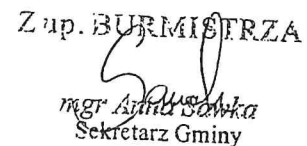 Z up. BURMISTRZA
mgr Anna Sawka
Sekretarz Gminy